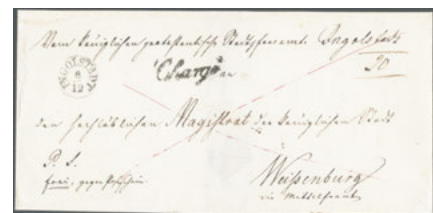 Vom Königlichen protestantischen Stadtpfarramte Ingolstadt
INGOLSTADT
8
12
Chargé
an
20
den hochlöblichen Magistrat der Königlichen Stadt
Weißenburg
frei, gegen Postschein.
in Mittelfranken